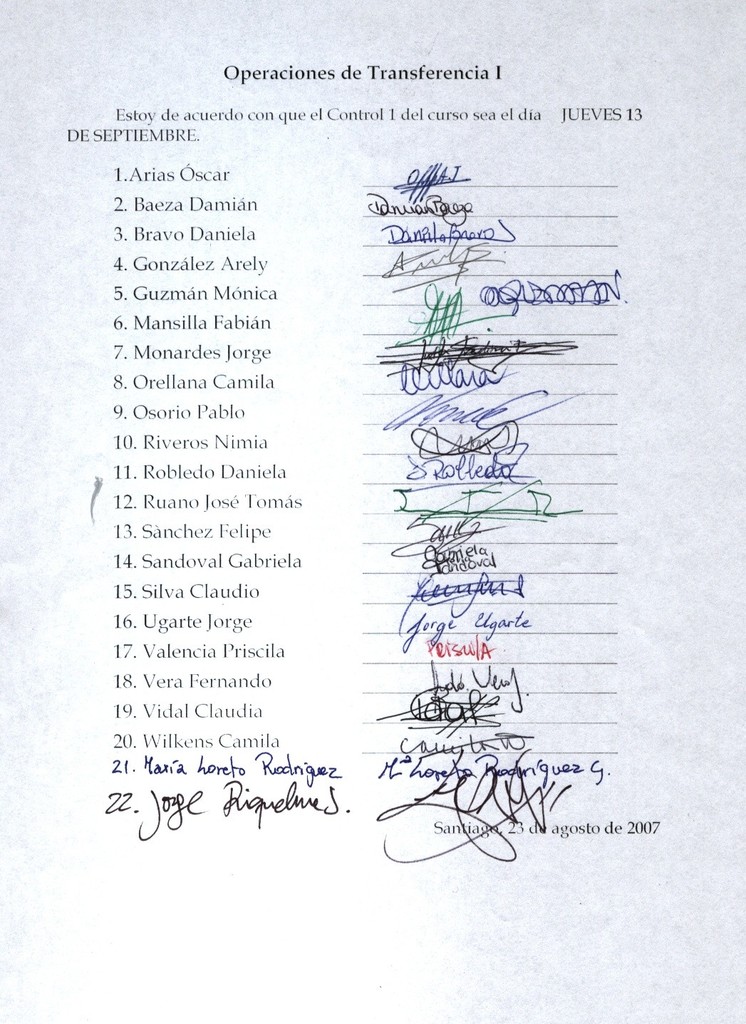 Operaciones de Transferencia I
Estoy de acuerdo con que el Control 1 del curso sea el día JUEVES 13
DE SEPTIEMBRE.
1.Arias Óscar
2. Baeza Damián Damian Baeza
3. Bravo Daniela Daniela Bravo
4. González Arely
5. Guzmán Mónica GUZMAN
6. Mansilla Fabián
7. Monardes Jorge
8. Orellana Camila
9. Osorio Pablo
10. Riveros Nimia
11. Robledo Daniela D Robledo
12. Ruano José Tomás
13. Sànchez Felipe
14. Sandoval Gabriela Gabriela Sandoval
15. Silva Claudio
16. Ugarte Jorge Jorge Ugarte
17. Valencia Priscila PRISCILA
18. Vera Fernando
19. Vidal Claudia
20. Wilkens Camila
21. María Loreto Rodríguez Mª Loreto Rodríguez G.
22. Jorge Riquelme S.
Santiago, 23 de agosto de 2007